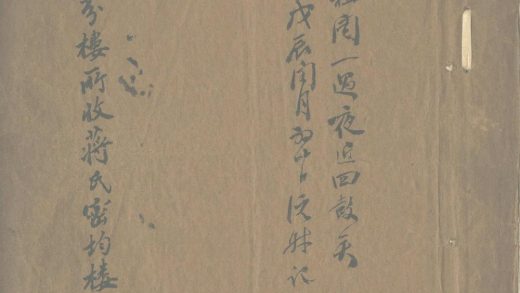 閱一過夜近四鼓矣
戊辰閏月初十日沅叔記
芬樓所收蔣氏密均樓